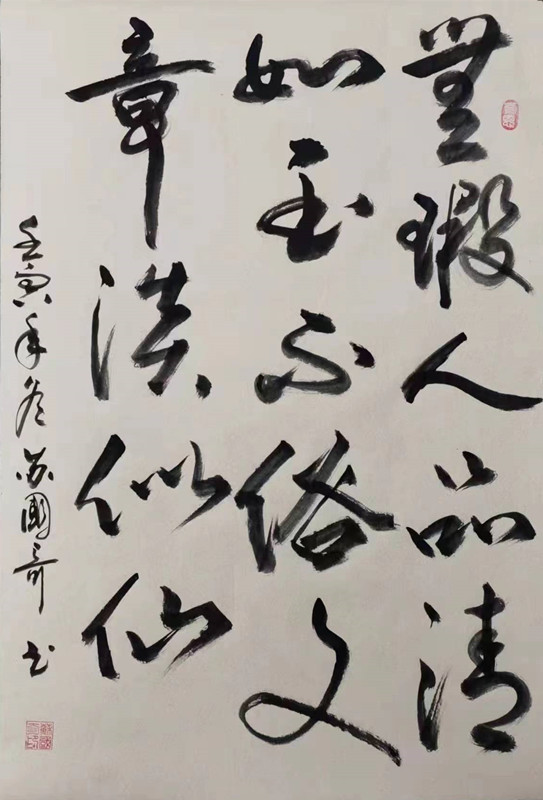 無瑕人品清
如玉不俗文
章淡似仙
壬寅年冬苏國奇书